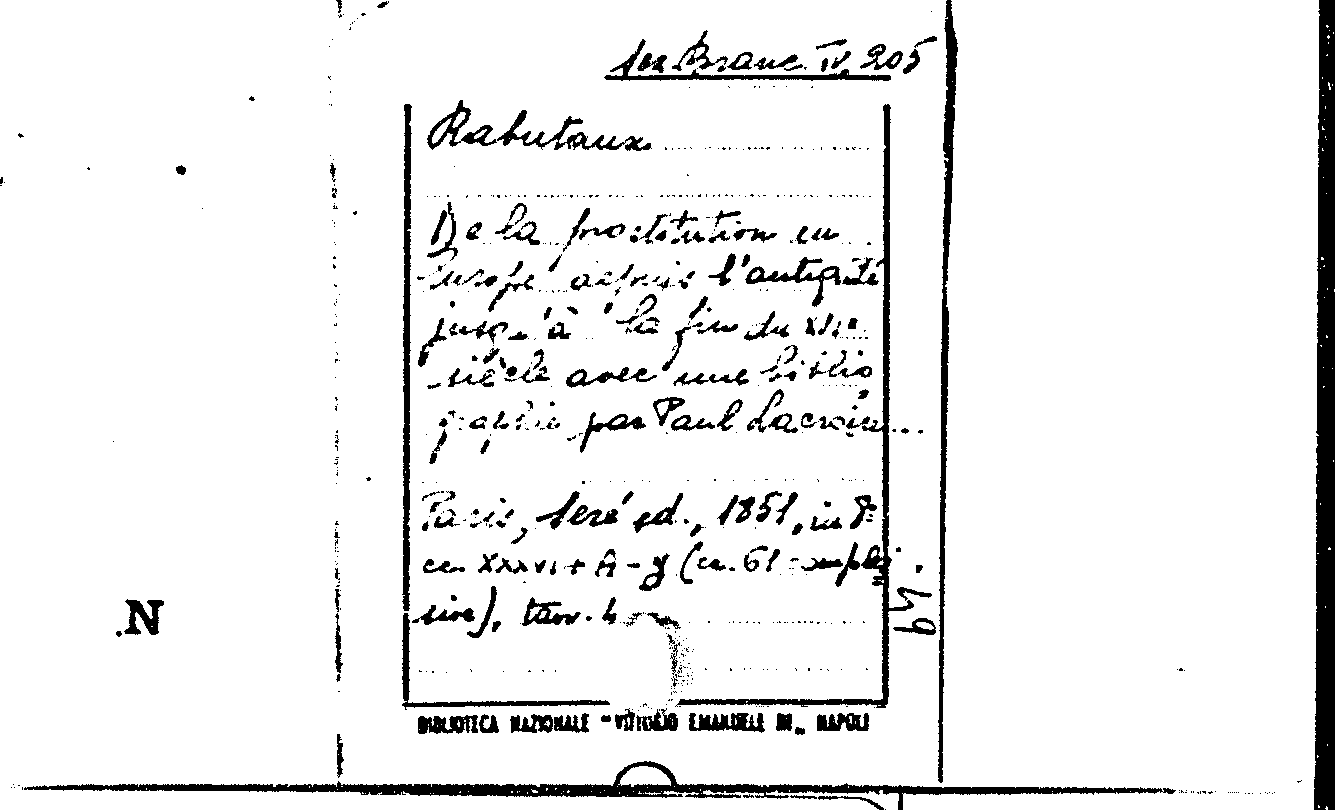 Sez Branc. IV, 205
Rabutaux
De la prostitution en
Europe depuis l'antiqité
jusqu'à la fin du XVIe
siècle avec une biblio
graphie par Paul Lacroix...
Paris, Seré ed., 1851, in 8°
cc. XXXVI + A - y (cc. 61 comples
sive), tavv. 4
64
.N
BIBLIOTECA NAZIONALE "VITTORIO EMANUELE III„ NAPOLI